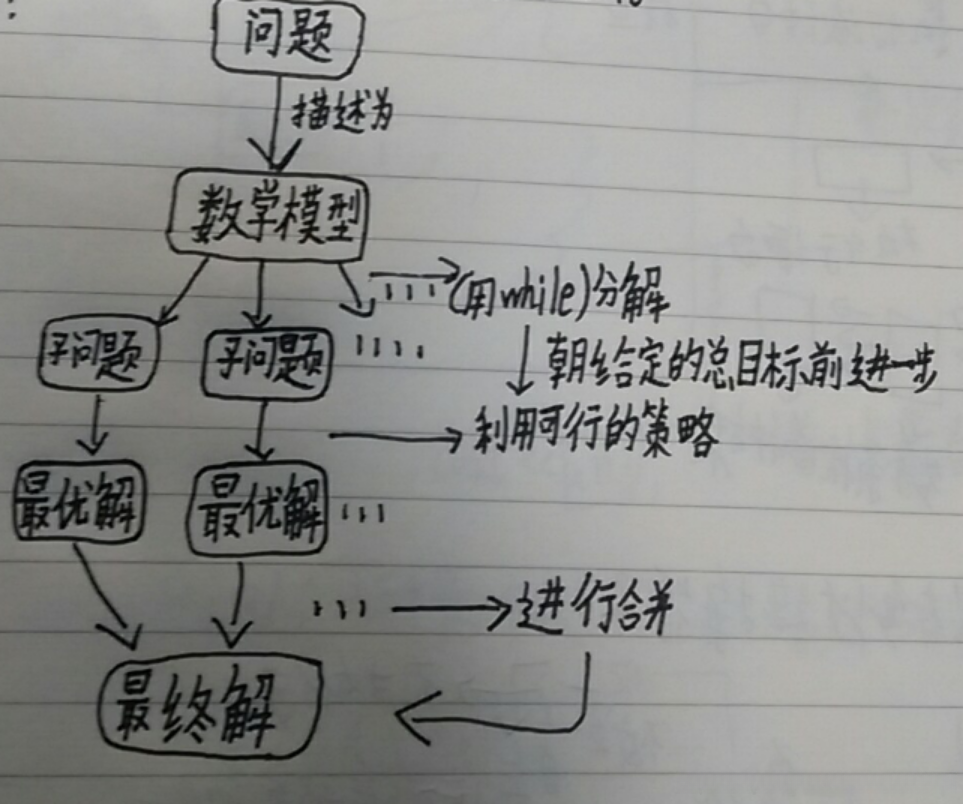 问题
描述为
数学模型
(用while)分解
子问题
子问题
朝给定的总目标前进一步
利用可行的策略
最优解
最优解
进行合并
最终解